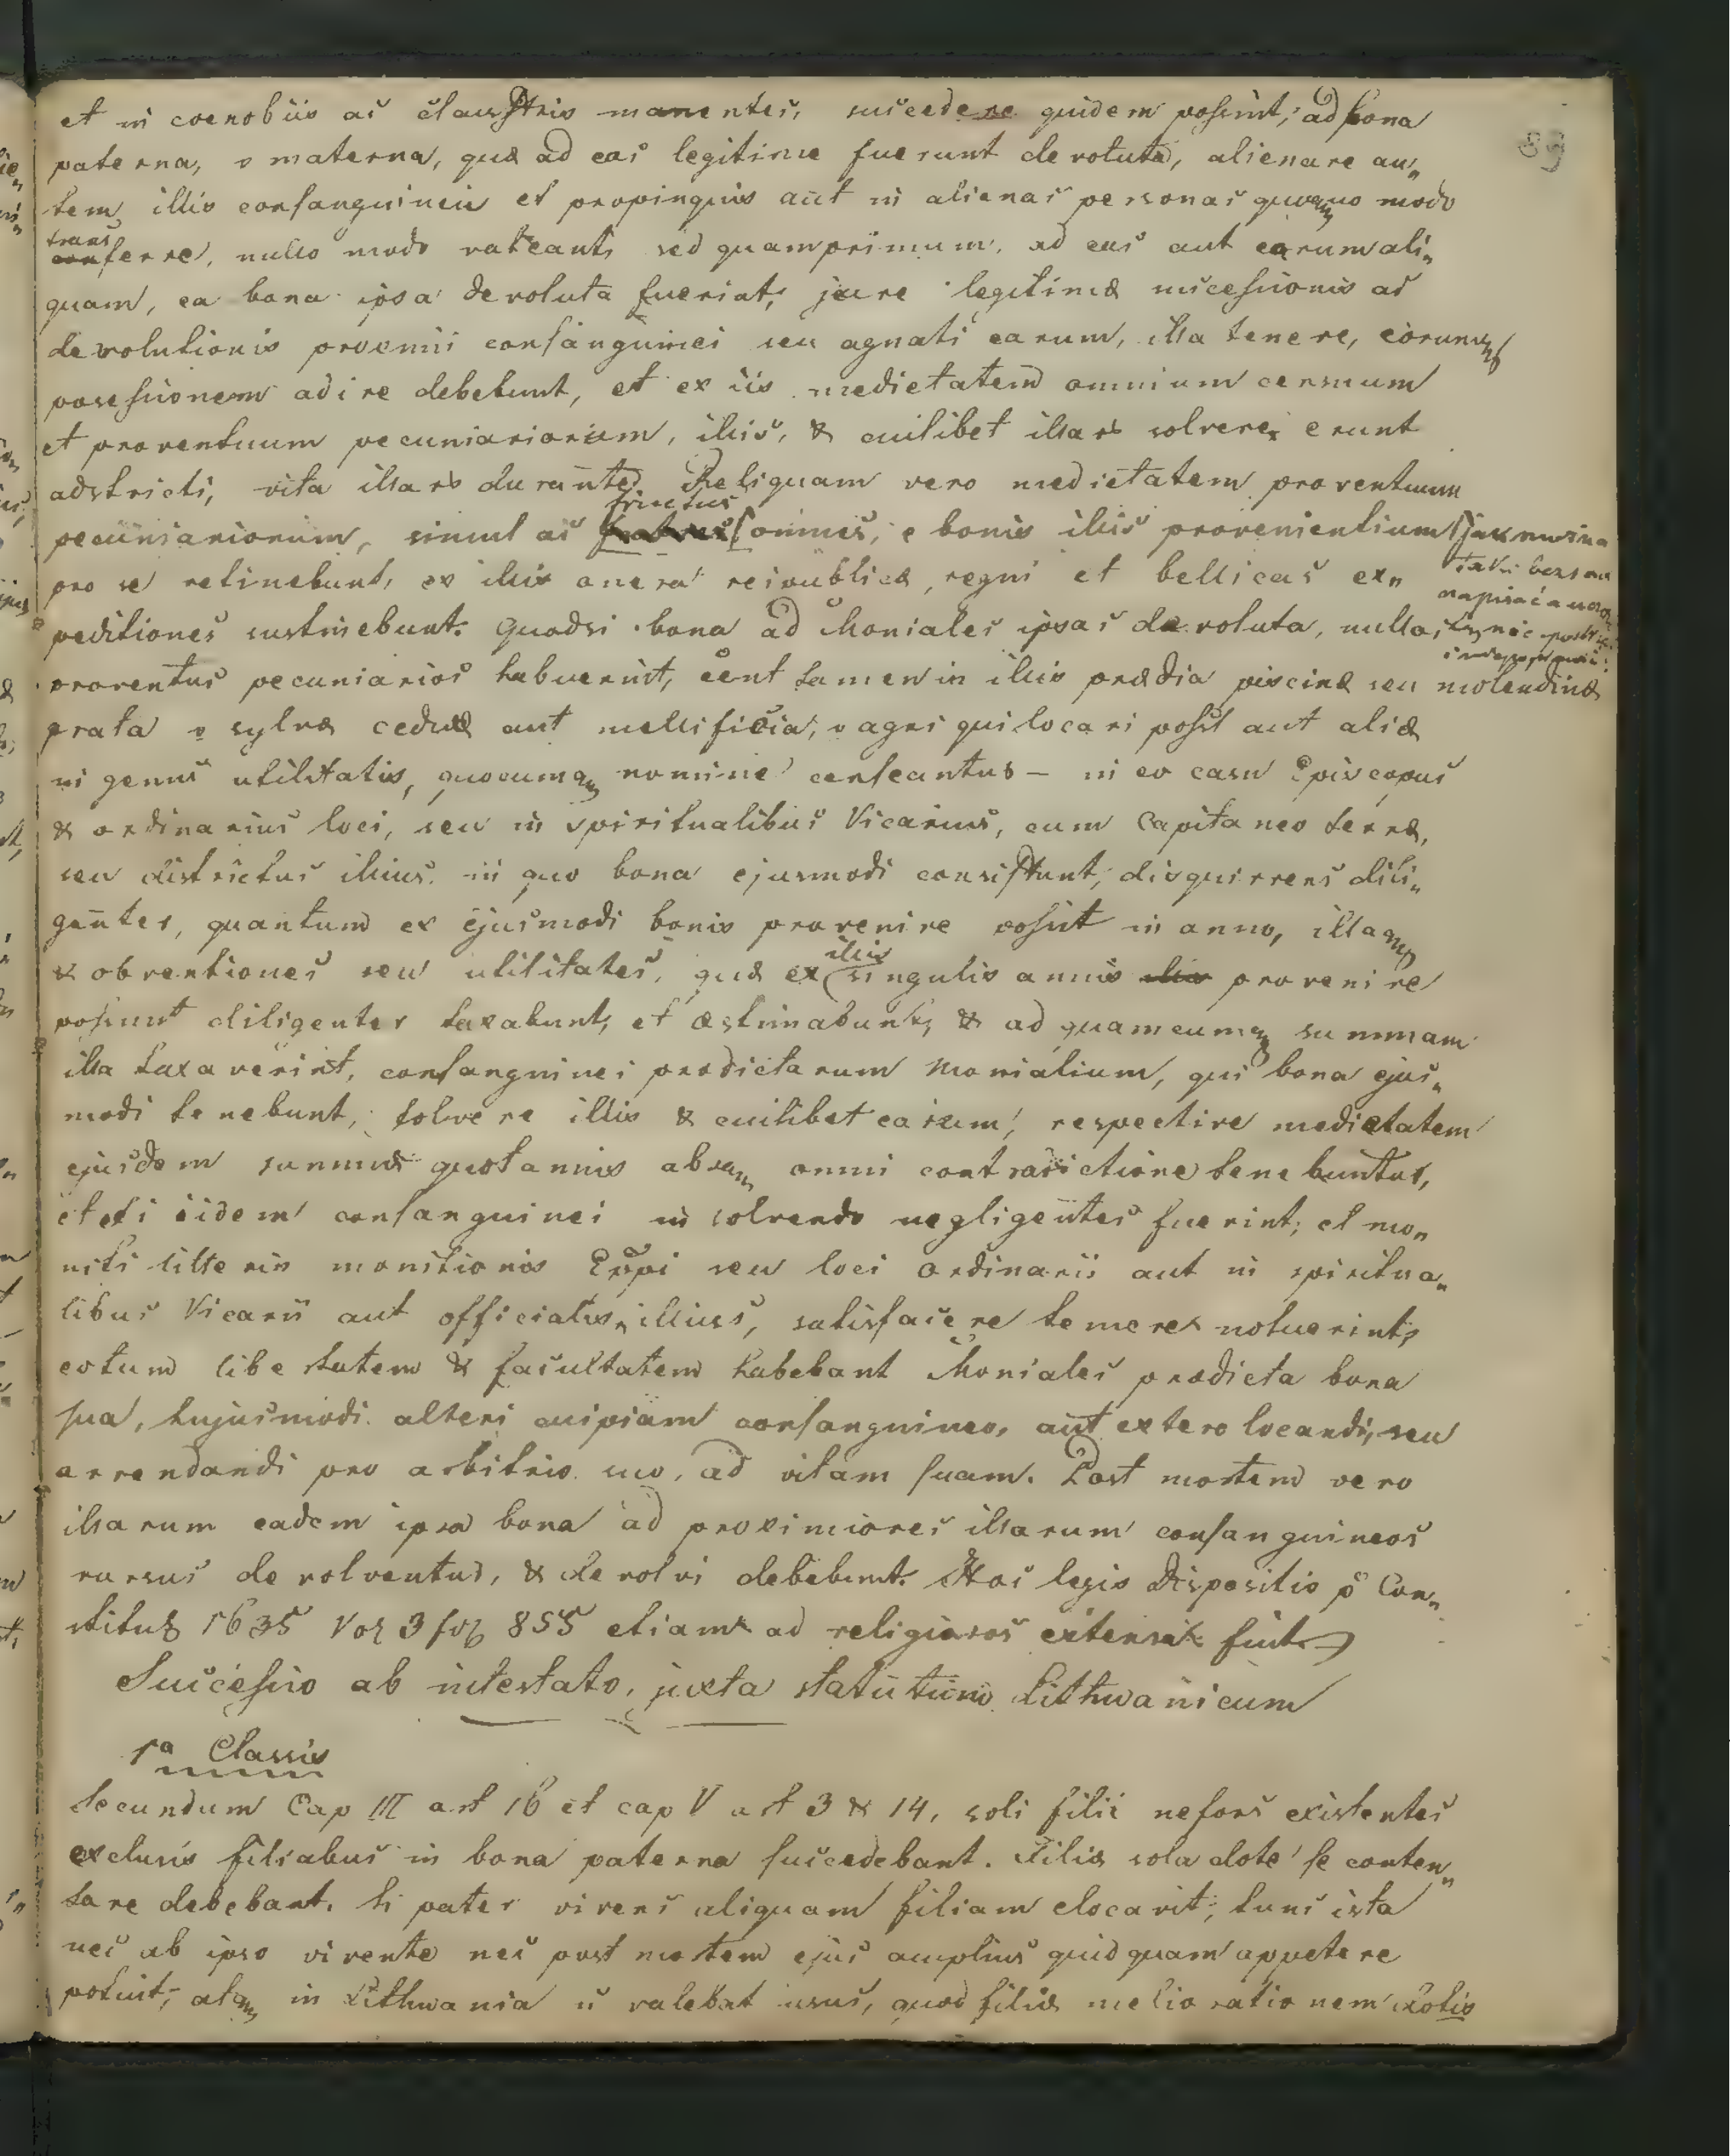 89
et in coenobiis ac claustris manentes, succedere quidem possint, ad bona
paterna, v materna, quæ ad eas legitime fuerunt devoluta, alienare au„
tem illis consanguineis et propinquis aut in alienas personas quoquo modo
transferre, nullo modo valeant, sed quamprimum, ad eas aut earum ali„
quam, ea bona ipsa devoluta fuerint, jure legitimæ successionis ac
devolutionis proximi consanguinei seu agnati earum, illa tenere, eorumq
possessionem adire debebunt, et ex iis medietatem omnium censuum
et proventuum pecuniariorum, illis, & cuilibet illar solvere erunt
adstricti, vita illar durante. Reliquam vero medietatem proventuum
pecuniariorum, simul ac fructus omnes, e bonis illis provenientium
pro se retinebunt, ex illis onera reipublicæ, regni et bellicas ex„
peditiones sustinebunt. Quodsi bona ad Moniales ipsas devoluta, nullos
proventus pecuniarios habuerint, sent tamen in illis prædia piscinæ seu molendinæ
prata v sylvæ ceduæ aut mellificia, v agri qui locari possit aut aliæ
in genus utilitatis, quocumq nomine censeantur – in eo casu Episcopus
& ordinarius loci, seu in spiritualibus Vicarius, cum Capitaneo terræ,
seu districtus illius in quo bona ejusmodi consistunt, disquirrens dili„
genter, quantum ex ejusmodi bonis provenire possit in anno, illasq
& obventiones seu utilitates, quæ ex illis singulis annis provenire
possunt diligenter taxabunt, et æstimabunt, & ad quamcumq summam
illa taxaverint, consanguinei prædictarum Monialium, qui bona ejus„
modi tenebunt, solvere illis & cuilbet earum, respective medietatem
ejusdem summæ quotannis absq omni contradictione tenebuntur,
et si iidem consanguinei in solvendo negligentes fuerint, et mo„
niti litteris monitionis Eppi seu loci ordinarii aut in spiritua„
libus Vicarii aut officialis illius, satisfacere temere noluerint,
eotum libertatem & facultatem habebant Moniales prædicta bona
sua, hujusmodi alteri cuipiam consanguineo, aut extero locandi, seu
arrendandi pro arbitrio suo, ad vitam suam. Post mortem vero
illarum eadem ipsa bona ad proximiores illarum consanguineos
rursus devolventur, & devolvi debebunt. Hac legis dispositio p Con„
stitut 1635 Vol 3 fol 855 etiam ad religiosos extensa fuit
Successio ab intestato, juxta statutum Lithwanicum
1a Classis
Secundum Cap III art 16 et cap V art 3 & 14, soli filii nefors existentes
exclusis filiabus in bona paterna succedebant. Filiæ sola dote se conten„
tare debebant. Si pater vivens aliquam filiam elocavit, tunc ista
nec ab ipso vivente nec post mortem ejus amplius quidquam appetere
potuit, atq in Lithwania is valebat usus, quod filiæ meliorationem dotis